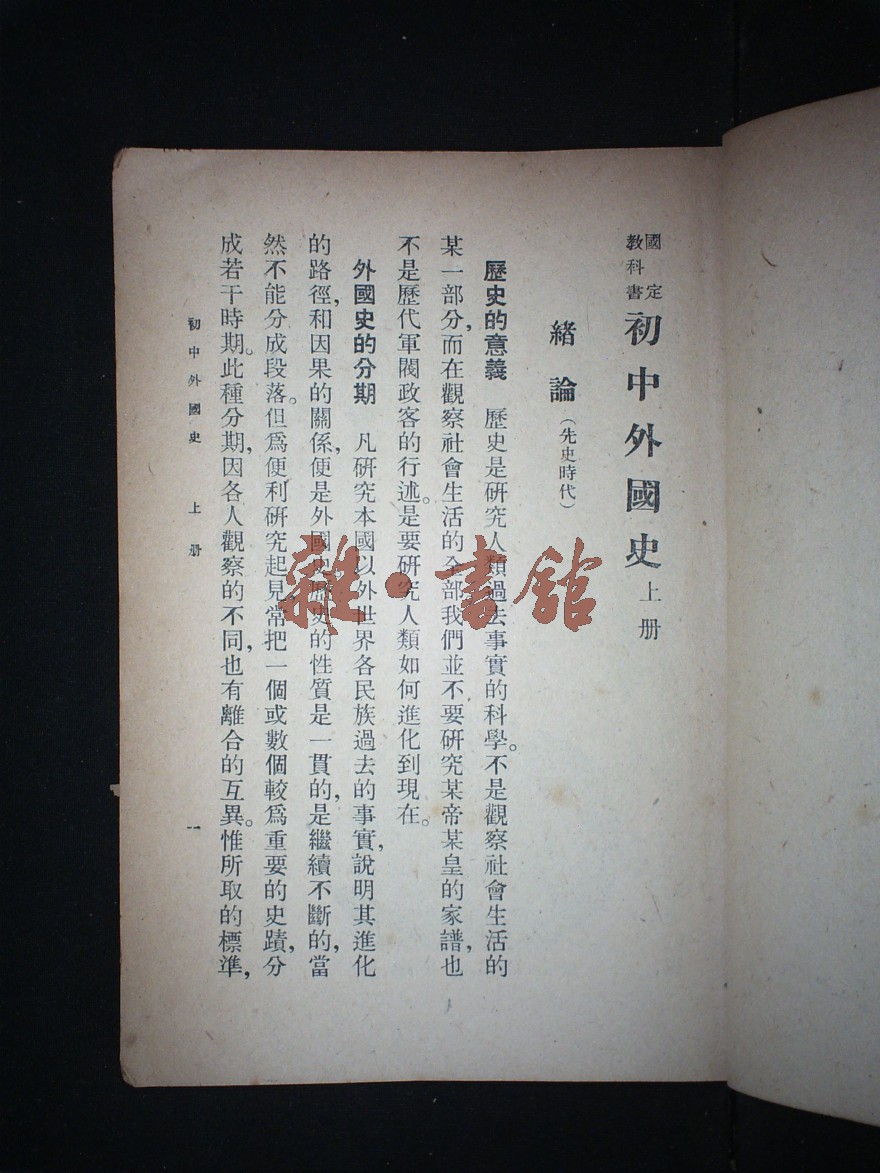 國定教科書 初中外國史 上册
緒論 (先史時代)
歷史的意義 歷史是研究人類過去事實的科學。不是觀察社會生活的
某一部分,而在觀察社會生活的全部我們並不要研究某帝某皇的家譜,也
不是歷代軍閥政客的行述。是要研究人類如何進化到現在。
外國史的分期 凡研究本國以外世界各民族過去的事實,說明其進化
的路徑,和因果的關係,便是外國史。歷史的性質是一貫的,是繼續不斷的,當
然不能分成段落。但爲便利研究起見,常把一個或數個較爲重要的史蹟,分
成若干時期。此種分期,因各人觀察的不同,也有離合的互異。惟所取的標準,
初中外國史 上册 一
雜·書館